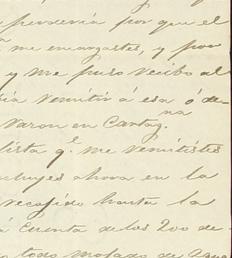 perderia por que el
me encargastes, y por
y me puso recibo al
remitir á esa ó de-
Varon en Cartag.na
lista q.e me remitistes
cluyes ahora en la
recojido hasta la
á cuenta de los 200 de-
todo mojado de agua